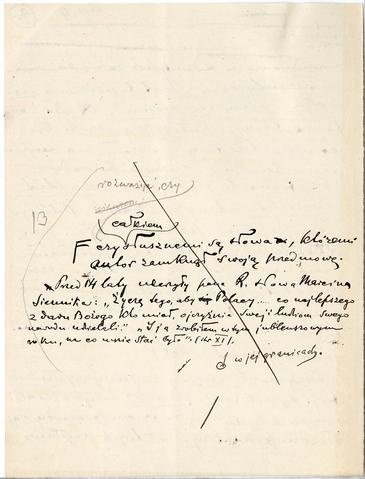 rozważyć, czy
13
całkiem
czy słusznemi są słowa, któremi
autor zamknął swoją przedmowę.
Przed 14 laty uderzyły pana R. słowa Marcina
Siennika: „Życzę tego, aby Polacy... co najlepszego
z daru Bożego kto miał, ojczyźnie swej i ludziom swego
narodu udzielali." „I ja zrobiłem w tym jubileuszowym
roku, na co mnie stać było". (str XI).
w jej granicach.